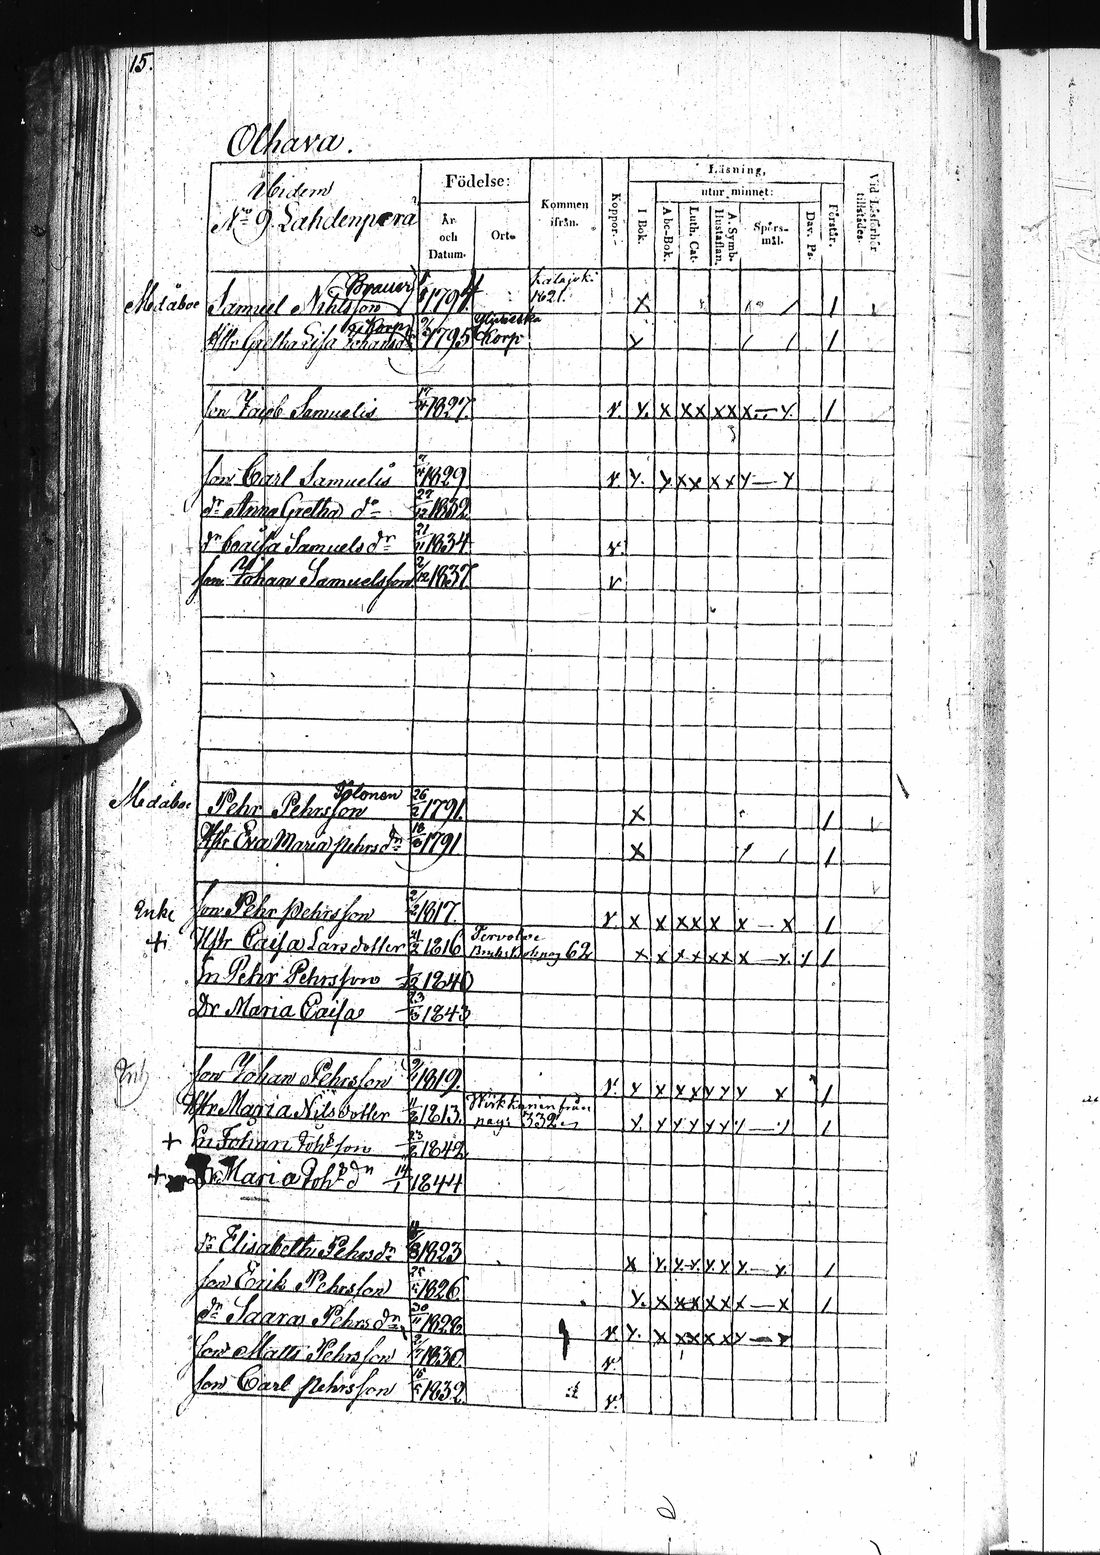 15.
Olhava.
Ibidem
No 9. Lahdenperä
Födelse:
År och Datum.
Ort.
Kommen ifrån.
Koppor.
Läsning,
utur minnet:
I Bok.
Abc-Bok.
Luth. Cat.
A. Symb. Hustaflan.
Spörs-mål.
Dav. Ps.
Förstår.
Vid Läsförhör tillstädes.
Medåboe Samuel Nihlsson Brauer 1794 1821.
Hstr Gretha Lisa Korp 1795 Korp
son Jacob Samuelis 1827. v. x x x x x x x 1
son Carl Samuelis 1829 v x x x x x x x x
dr Anna Gretha do 29/12 1832
dr Caisa Samuels dr 21/11 1834 v
son Johan Samuelsson 2/12 1837. v
Medåboe Pehr Pehrsson Tolonen 26/2 1791. x 1
Hstr Eva Maria Pehrs dr 18/8 1791 x 1
Enke son Pehr Pehrsson 2/2 1817. v x x x x x x x 1
+ Hstr Caisa Lars dotter 1816 Tervola 62 x x x x x x x x 1
Sn Pehr Pehrsson 1840
Dr Maria Caisa 23/3 1843
Inh son Johan Pehrsson 1819. v x x x x x x x x 1
Hstr Maria Nilsdotter 1813. från pag: 332 x x x x x x x x 1
+ Sn Johan Joh:son 23/2 1842
+ Dr Maria Joh: dr 14/1 1844
dr Elisabeth Pehrs dr 1823 x x x x x x x x 1
son Erik Pehrsson 25/5 1826 x x x x x x x x 1
dr Saara Pehrs dr 30/11 1828 v x x x x x x x x
son Matts Pehrsson 1830 v
son Carl Pehrsson 15/5 1832. v